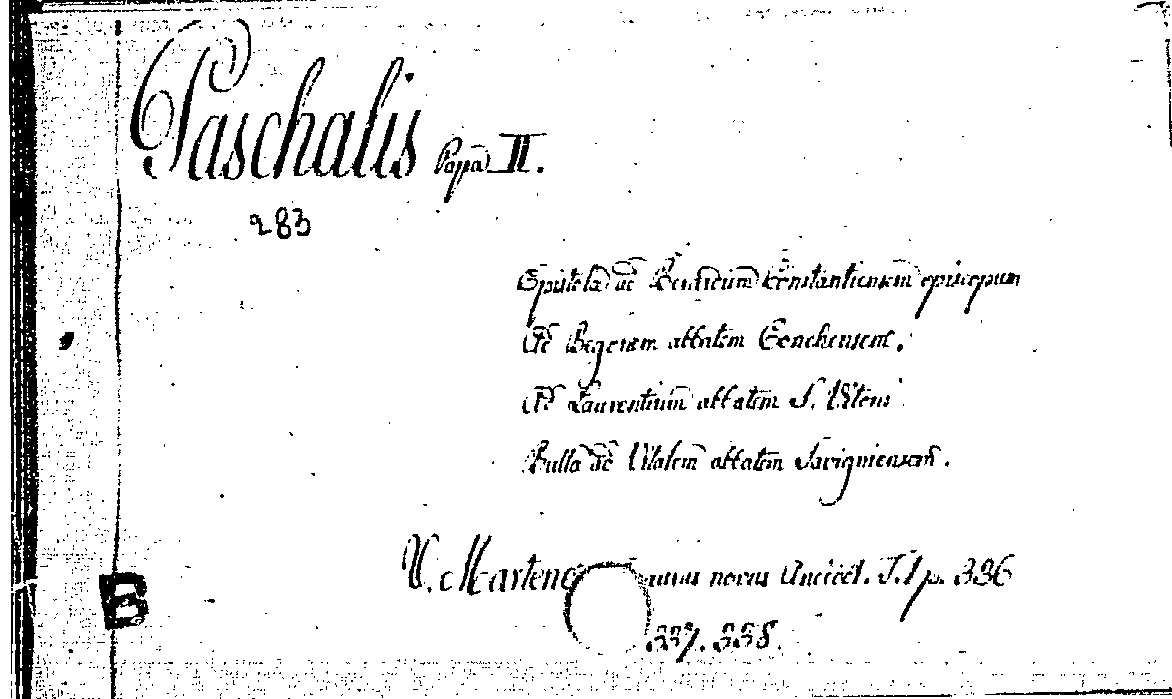 Paschalis Papa II.
283
Epistola ad Constantiensem episcopum
Ad Begonem abbatem Conchensem.
Ad Laurentium abbatem S. Vitoni
Bulla ad Vitalem abbatem Savigniensem.
V. Martene novus Anecdot. T. I p. 336
337. 338.
B